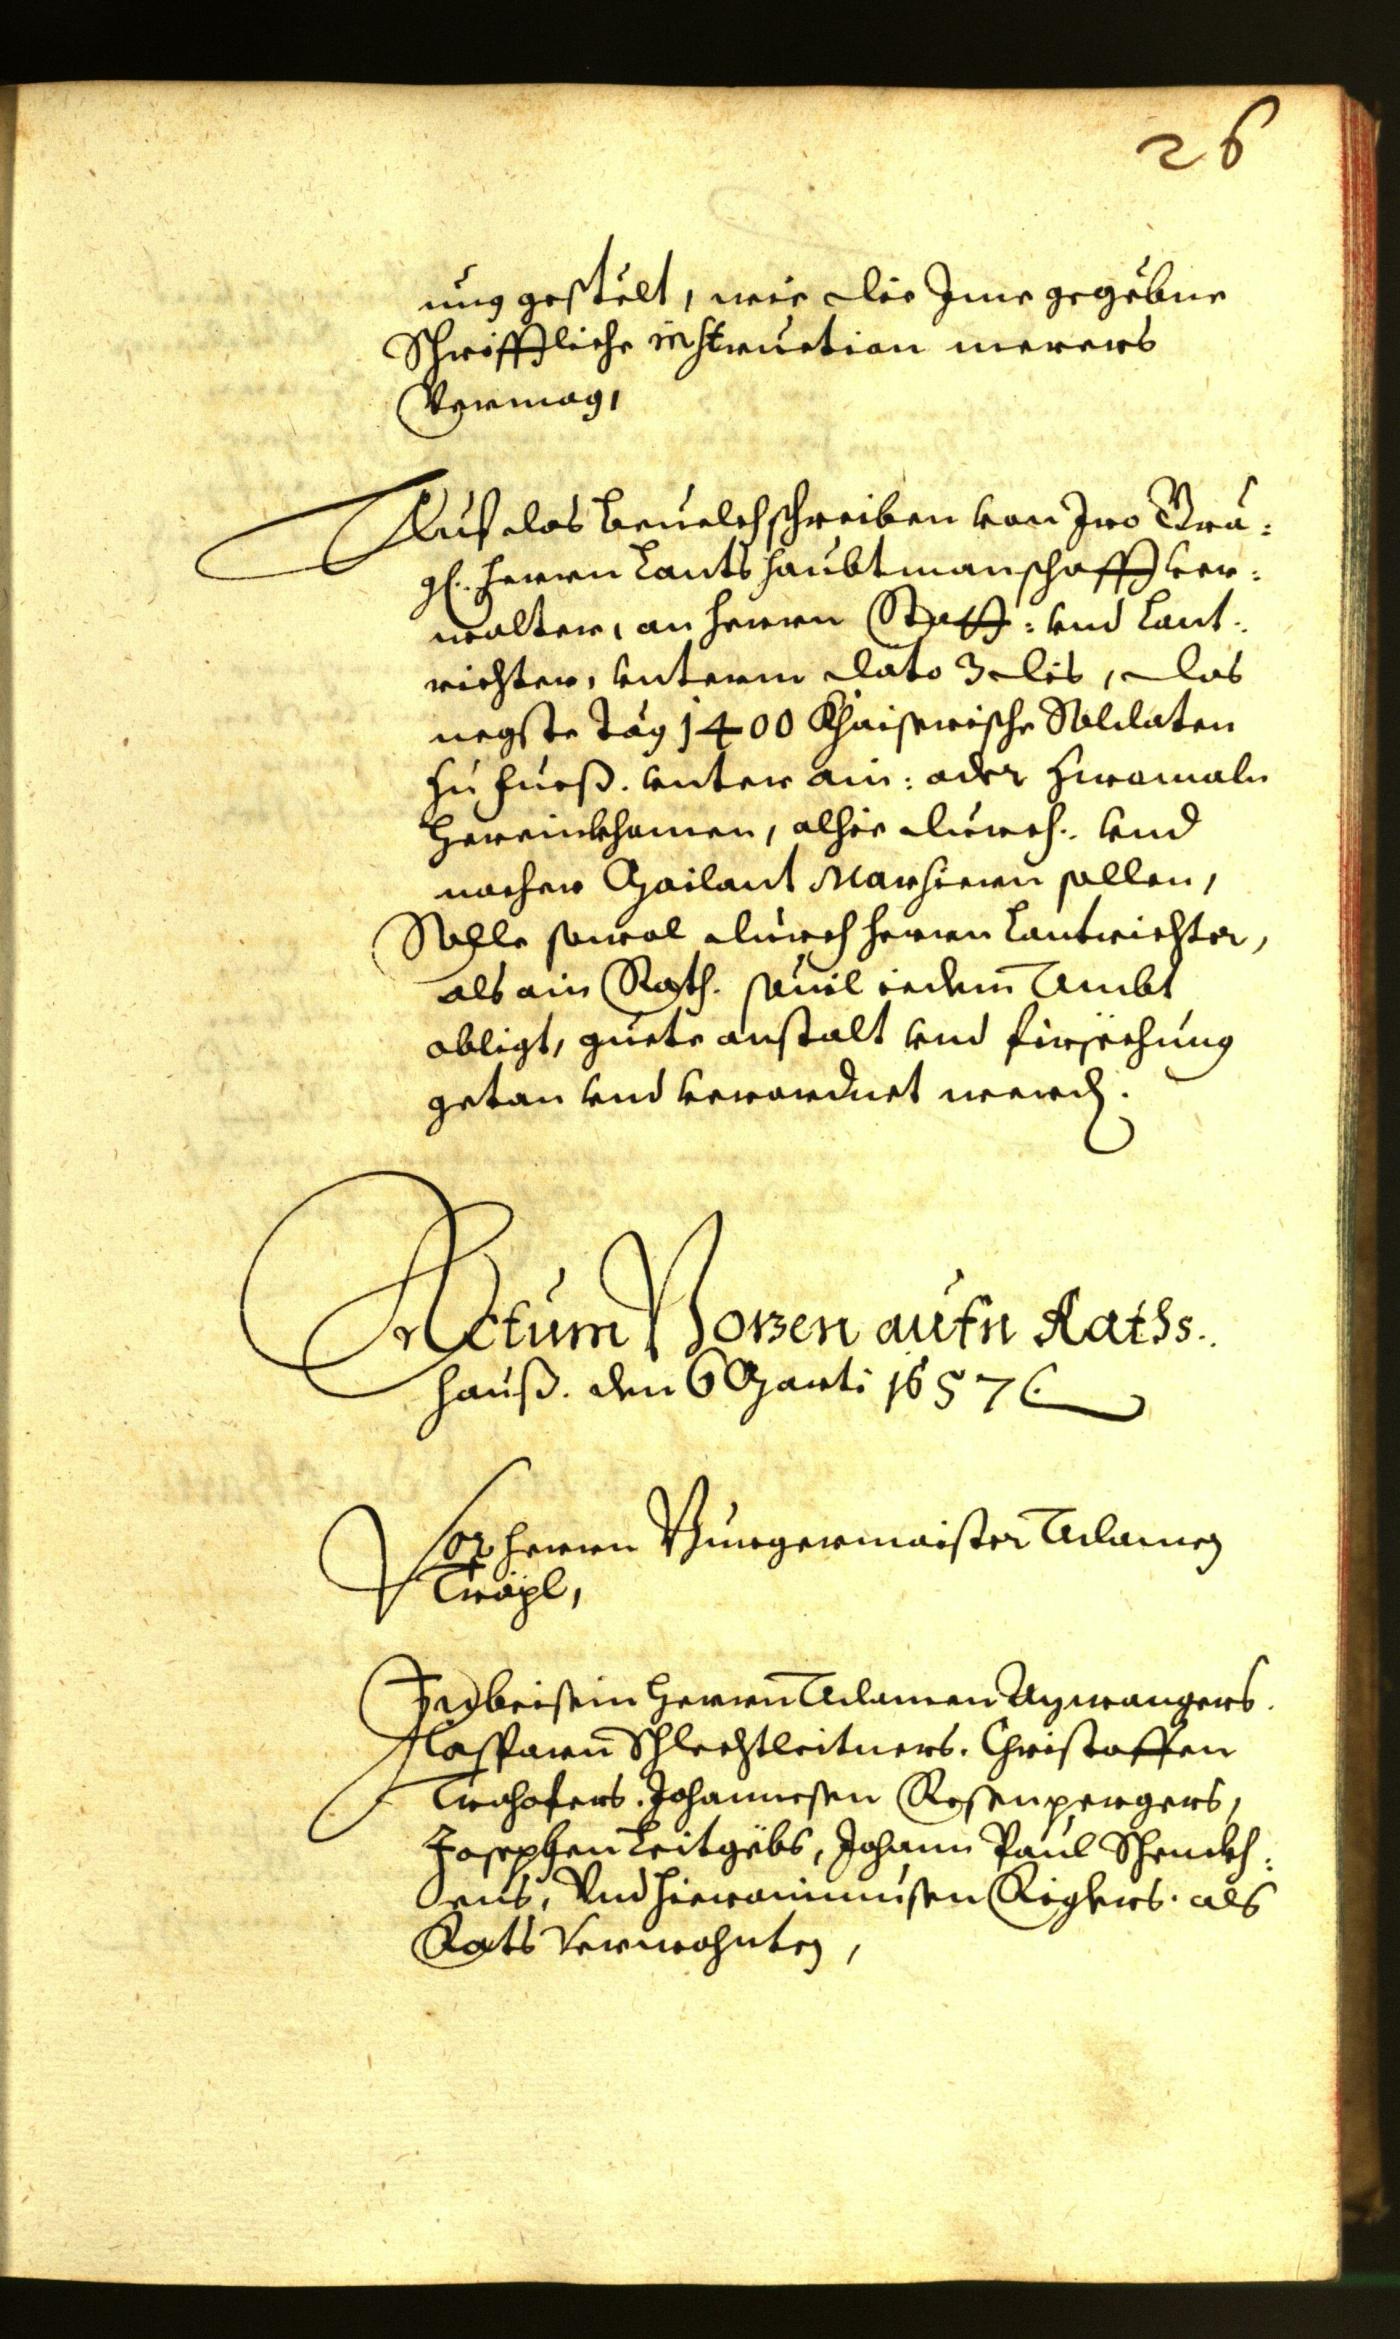 26
ung gestelt, wie die Ime gegebne
Schrifftliche instruction merers
Vermag,
Auf das beuelchschreiben von Iro Gra:
gl. herrn Lantshaubtmanschafft ver:
walter, an herrn Statt: vnd Lant:
richter, vnterm dato 3 dis, das
negste Tag 1400 Khaiserische Soldaten
zu fueß. vnter ain: oder zwomaln
hereinkhomen, alhie durch. vnd
nacher Mailant Marschiern sollen,
Solle sowol durch herrn Lantrichter,
als ain Rath. souil iedem Ambt
obligt, guete anstalt vnd firsechung
getan vnd verordnet werden.
Actum Bozen aufn Raths.
hauß. den 6 Marti 1657
Vor herrn Burgermaister Adamen
Tröpl,
In beisein herrn Adamen Azwangers.
Casparn Schlechtleitners. Christoffen
Trohofers. Johannesen Rosenpergers,
Josephen Leitgebs, Johann Paul Schenckh:
ens, Vnd Hieronimusen Riglers. als
Rats Verwohnten,